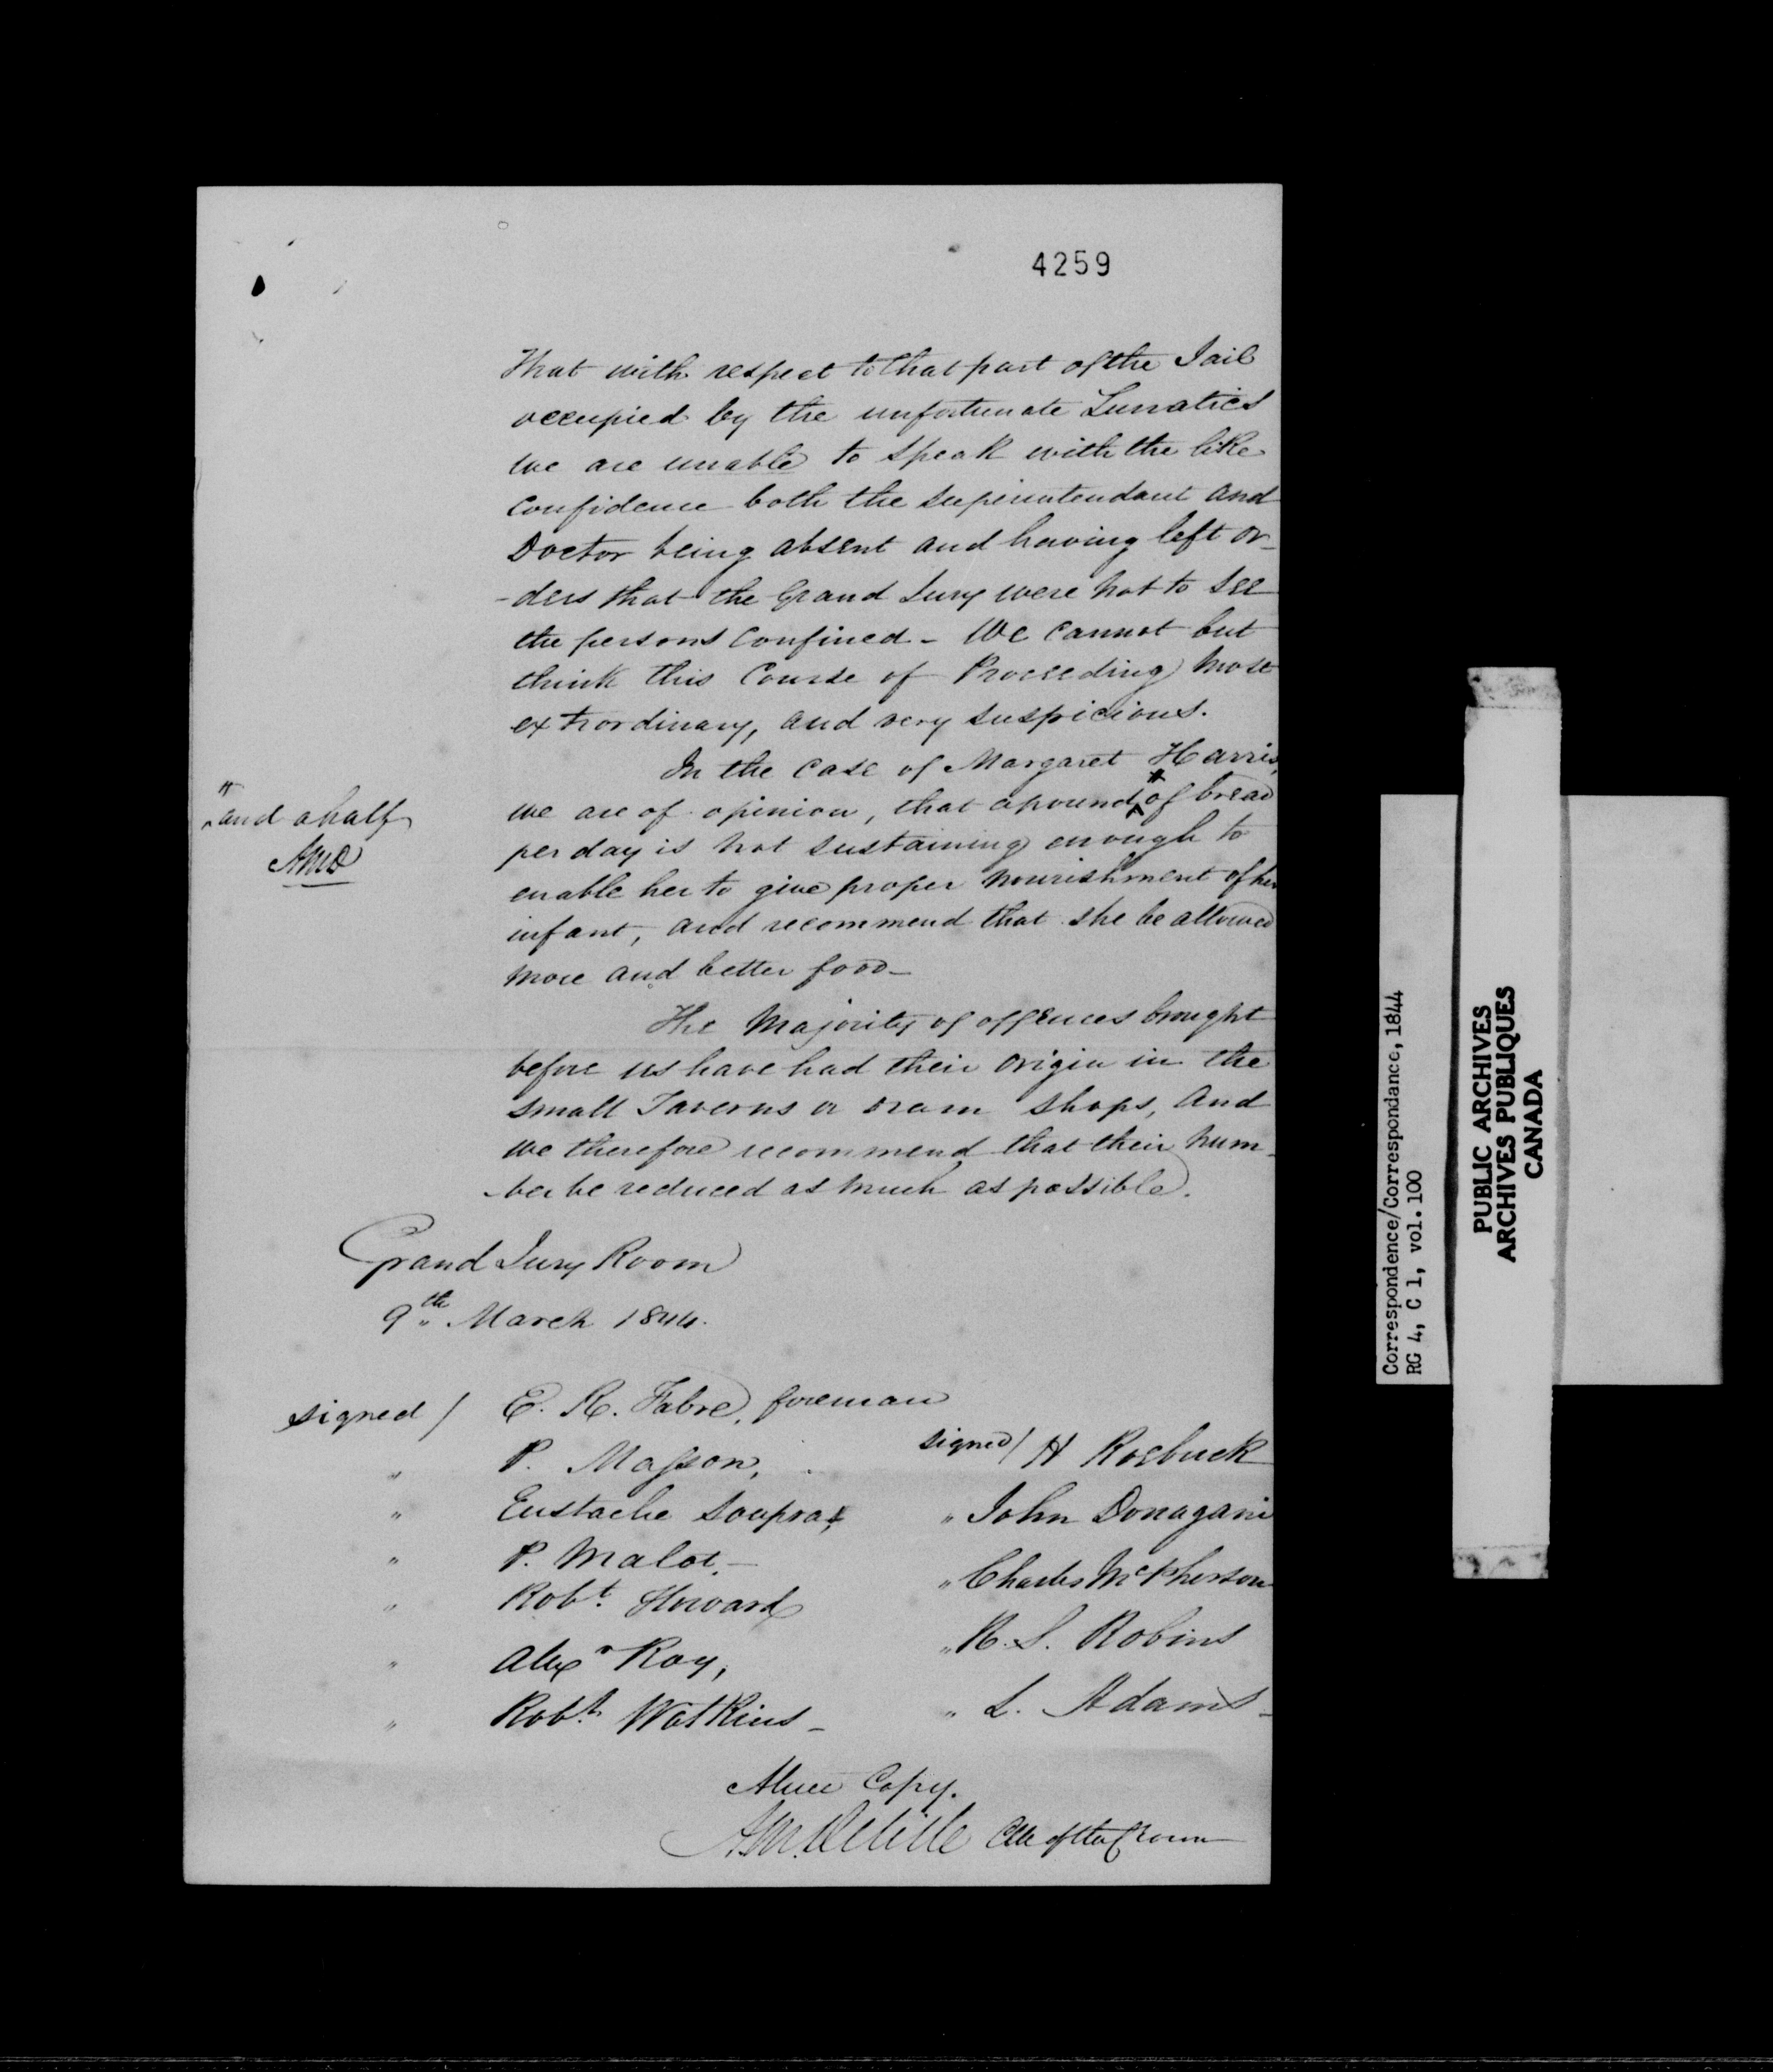 4259
That with respect to that part of the Jail
occupied by the unfortunate Lunatics
we are unable to speak with the like
confidence both the superintendant and
Doctor being absent and having left or-
-ders that the Grand Jury were not to see
the persons confined - We cannot but
think this Course of Proceeding most
extrordinary, and very suspicious.
In the case of Margaret Harris,
we are of opinion, that a pound # of bread
# and a half
AMD
per day is not sustaining enough to
enable her to give proper nourishment of her
infant, and recommend that she be allowed
more and better food -
The Majority of offences brought
before us have had their origin in the
small Taverns or dram shops, and
we therefore recommend that their num-
-ber be reduced as much as possible.
Grand Jury Room
9th March 1844.
signed / E. R. Fabre, foreman
" P. Masson,
" Eustache Soupras,
" P. Malot, -
" Robt. Howard
" Alexr Roy,
" Robt. Watkins -
signed / H Roebuck
" John Donagani
" Charles McPherson
" R. S. Robins
" L. Adams -
A true Copy.
A.M. Delisle Clk of the Crown
Correspondence/Correspondance, 1844
RG 4, C 1, vol. 100
PUBLIC ARCHIVES
ARCHIVES PUBLIQUES
CANADA